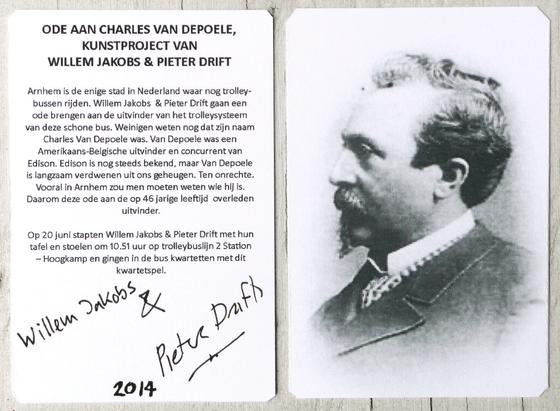 ODE AAN CHARLES VAN DEPOELE,
KUNSTPROJECT VAN
WILLEM JAKOBS & PIETER DRIFT
Arnhem is de enige stad in Nederland waar nog trolley-
bussen rijden. Willem Jakobs & Pieter Drift gaan een
ode brengen aan de uitvinder van het trolleysysteem
van deze schone bus. Weinigen weten nog dat zijn naam
Charles Van Depoele was. Van Depoele was een
Amerikaans-Belgische uitvinder en concurrent van
Edison. Edison is nog steeds bekend, maar Van Depoele
is langzaam verdwenen uit ons geheugen. Ten onrechte.
Vooral in Arnhem zou men moeten weten wie hij is.
Daarom deze ode aan de op 46 jarige leeftijd overleden
uitvinder.
Op 20 juni stapten Willem Jakobs & Pieter Drift met hun
tafel en stoelen om 10.51 uur op trolleybuslijn 2 Station
– Hoogkamp en gingen in de bus kwartetten met dit
kwartetspel.
Willem Jakobs
&
Pieter Drift
2014